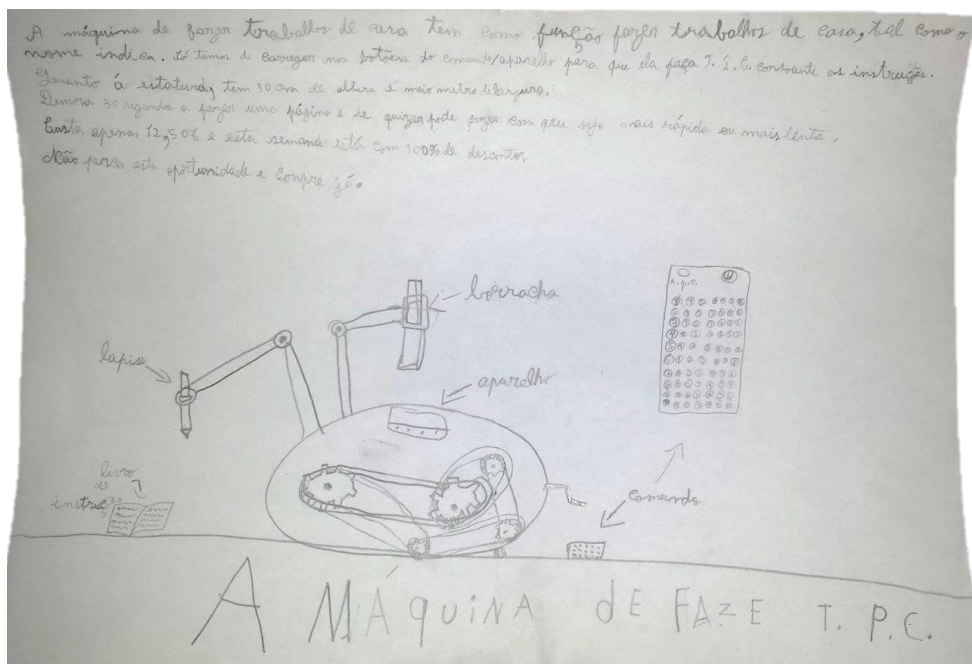 A máquina de fazer trabalhos de casa tem como função fazer trabalhos de casa, tal como o
nome indica. Só temos de carregar nos botões do comando/aparelho para que ela faça T. P. C. consoante as instruções.
Quanto á estatura, tem 30 cm de altura e meio metro de largura.
Demora 30 segundos a fazer uma página e se quizer pode fazer com que seja mais rápida ou mais lenta.
Custa apenas 12,50€ e esta semana está com 100% de desconto.
Não perca esta oportunidade e compre já.
borracha
T.p.c.
lapis
aparelho
livro
de
instruções
comando
A MÁQUINA dE FAZE T. P. C.